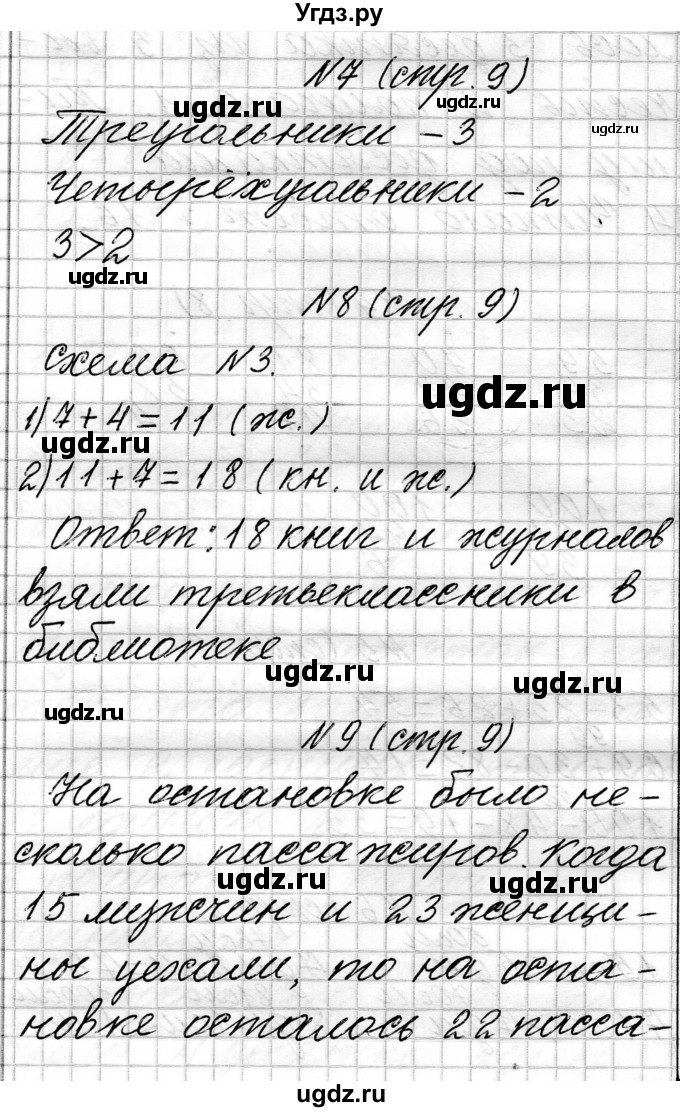 Угдз.ру
N7 (стр. 9)
ugdz.ru ugdz.ru ugdz.ru
Треугольники – 3
Четырёхугольники – 2
3>2
ugdz.ru
N8 (стр. 9)
Схема N3.
ugdz.ru
1) 7+4=11 (ж.)
ugdz.ru
2) 11+7=18 (кн. и ж.)
Ответ: 18 книг и журналов
взяли третьеклассники в
библиотеке
ugdz.ru ugdz.ru
ugdz.ru
N9 (стр. 9)
На остановке было не-
сколько пассажиров. Когда
ugdz.ru ugdz.ru
15 мужчин и 23 женщи-
ны уехали, то на оста-
новке осталось 22 пасса-
ugdz.ru